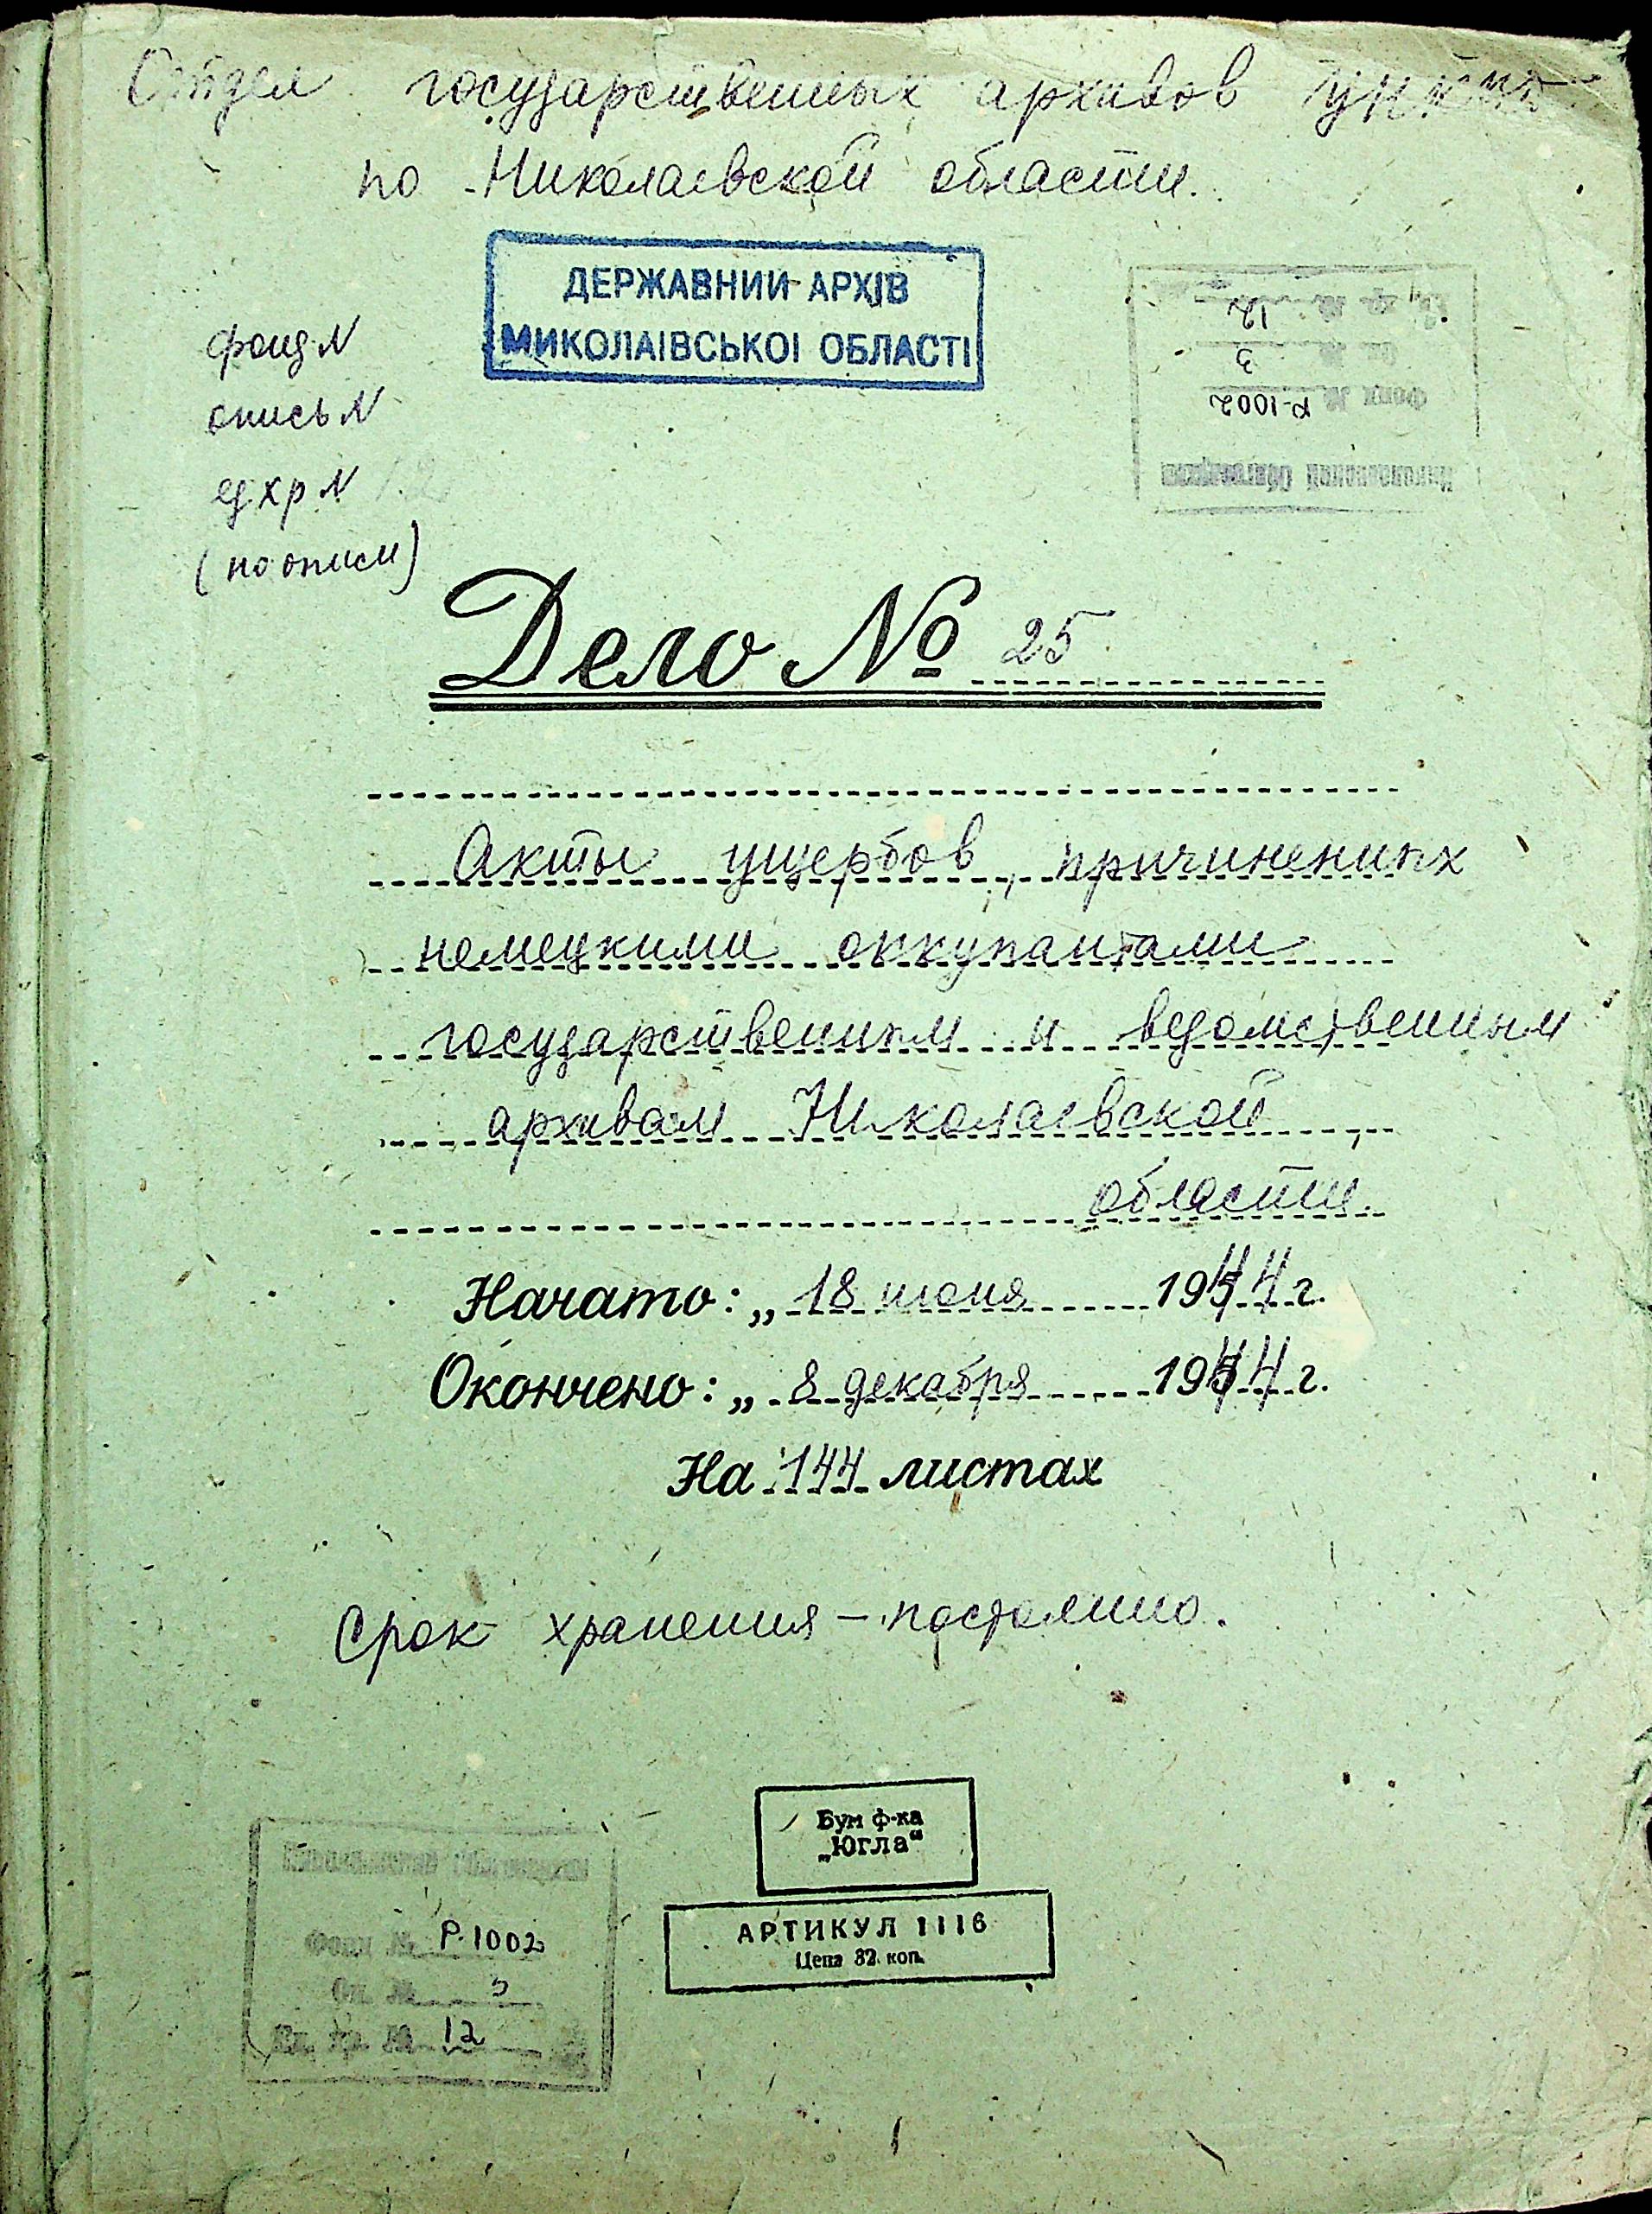 Отдел государственных архивов УНКВД
по Николаевской области.
ДЕРЖАВНИЙ АРХІВ
МИКОЛАІВСЬКОІ ОБЛАСТІ
фонд N
опись N
ед хр N 12
(по описи)
12
3
Фонд № Р-1002
Николаевский облгосархив
Дело № 25
Акты ущербов, причиненных
немецкими оккупантами
государственным и ведомственным
архивам Николаевской
области.
Начато: „ 18 июня 1944 г.
Окончено: „ 8 декабря 1944 г.
На 144 листах
Срок хранения – постоянно.
Бум ф-ка
„Югла“
АРТИКУЛ 1116
Цена 32 коп.
Николаевский облгосархив
Фонд № Р-1002
Оп. № 3
Ед. хр. № 12